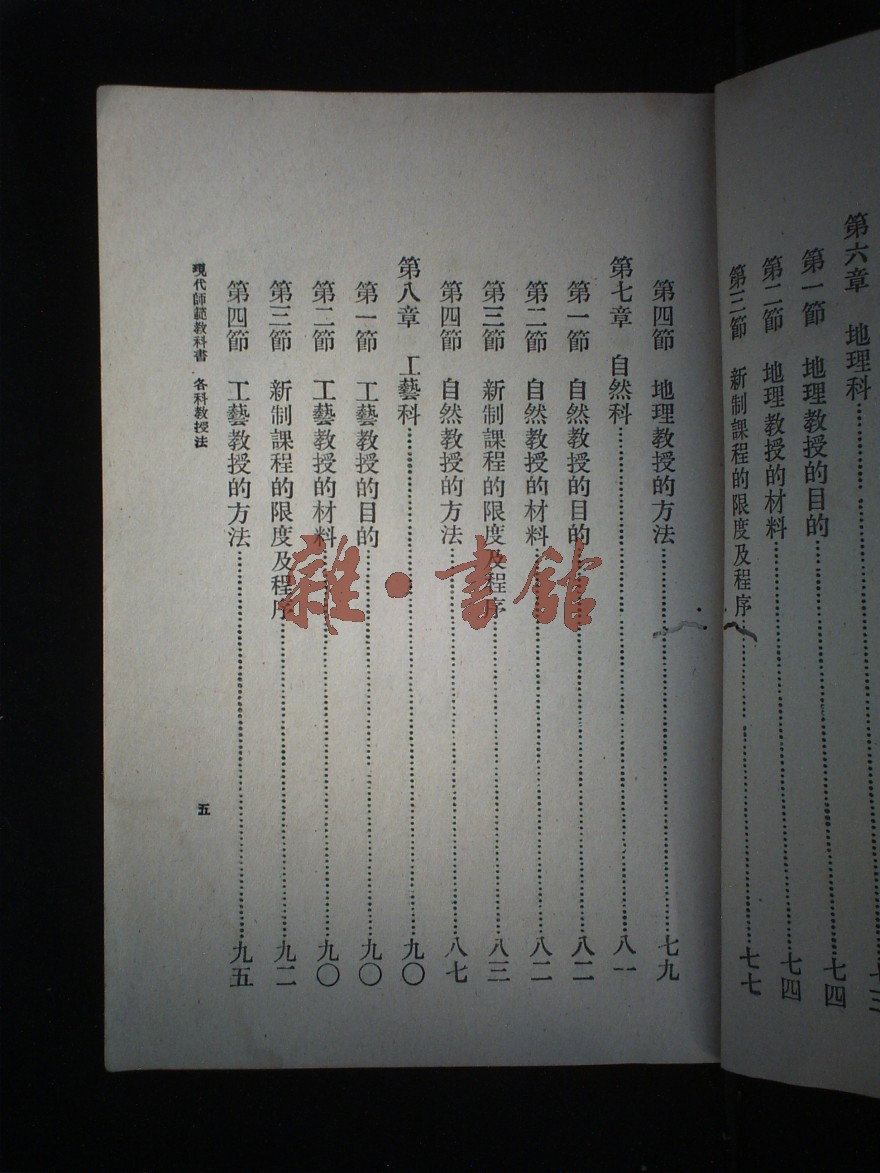 第六章　地理科…………七三
第一節　地理教授的目的…………七四
第二節　地理教授的材料…………七四
第三節　新制課程的限度及程序…………七七
第四節　地理教授的方法…………七九
第七章　自然科…………八一
第一節　自然教授的目的…………八二
第二節　自然教授的材料…………八二
第三節　新制課程的限度及程序…………八三
第四節　自然教授的方法…………八七
第八章　工藝科…………九〇
第一節　工藝教授的目的…………九〇
第二節　工藝教授的材料…………九〇
第三節　新制課程的限度及程序…………九二
第四節　工藝教授的方法…………九五
現代師範教科書　各科教授法　五
雜·書館